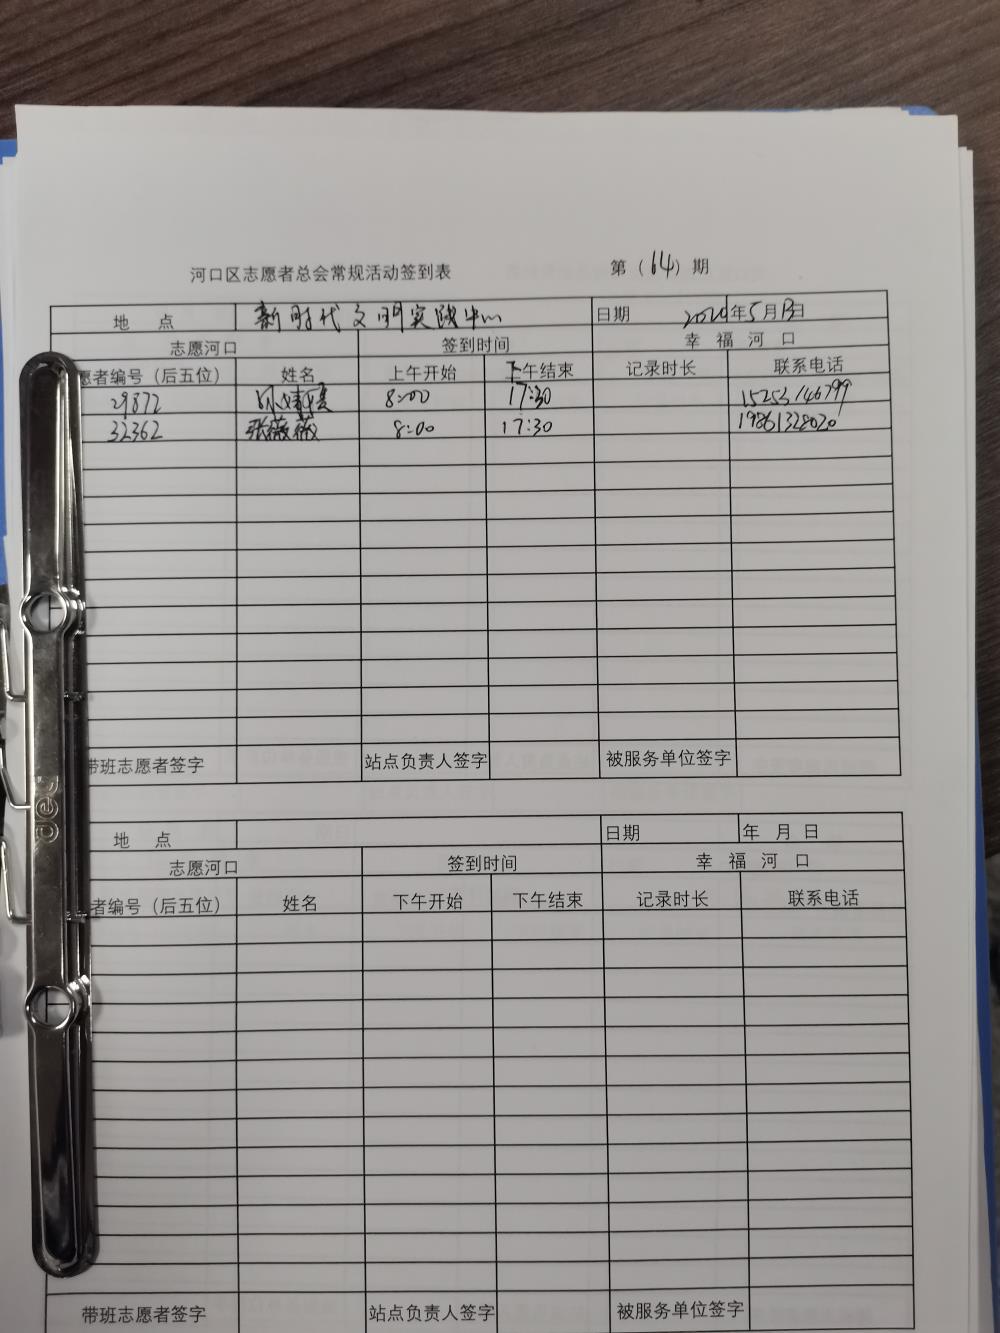 河口区志愿者总会常规活动签到表 第（164）期
地 点 新时代文明实践中心 日期 年5月13日
志愿河口 签到时间 幸 福 河 口
愿者编号（后五位） 姓名 上午开始 下午结束 记录时长 联系电话
29872 8:00 17:30 15253146799
32362 张薇薇 8:00 17:30 19861328020
带班志愿者签字 站点负责人签字 被服务单位签字
地 点 日期 年 月 日
志愿河口 签到时间 幸 福 河 口
者编号（后五位） 姓名 下午开始 下午结束 记录时长 联系电话
带班志愿者签字 站点负责人签字 被服务单位签字
deli